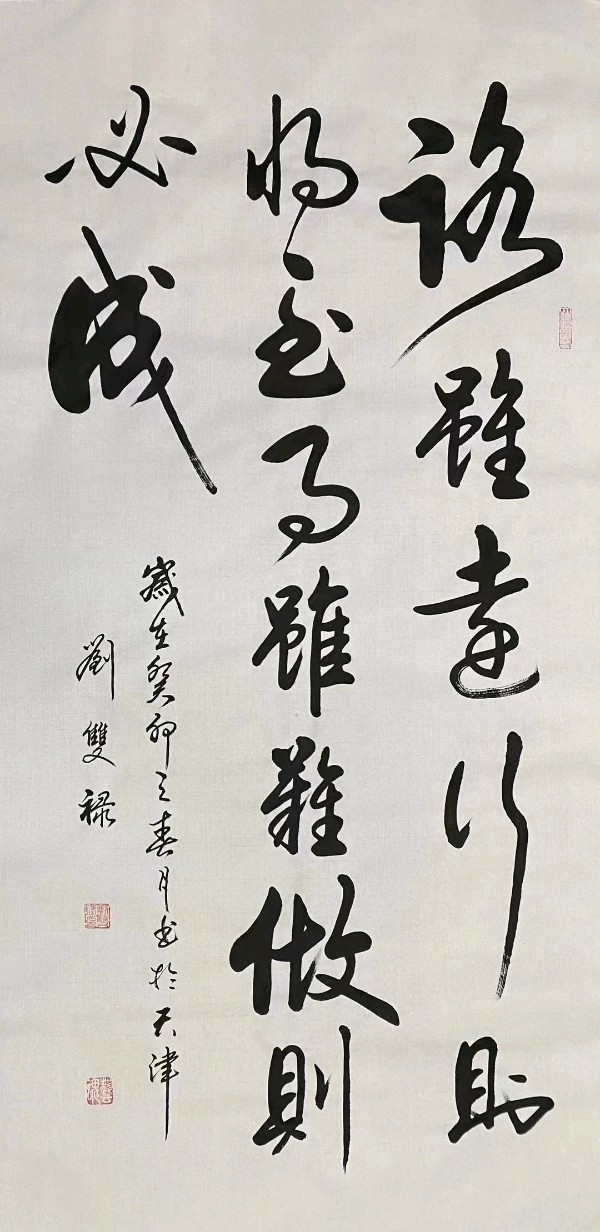 路雖遠行則
將至事雖難做則
必成
歲在癸卯之春月書於天津
劉雙祿